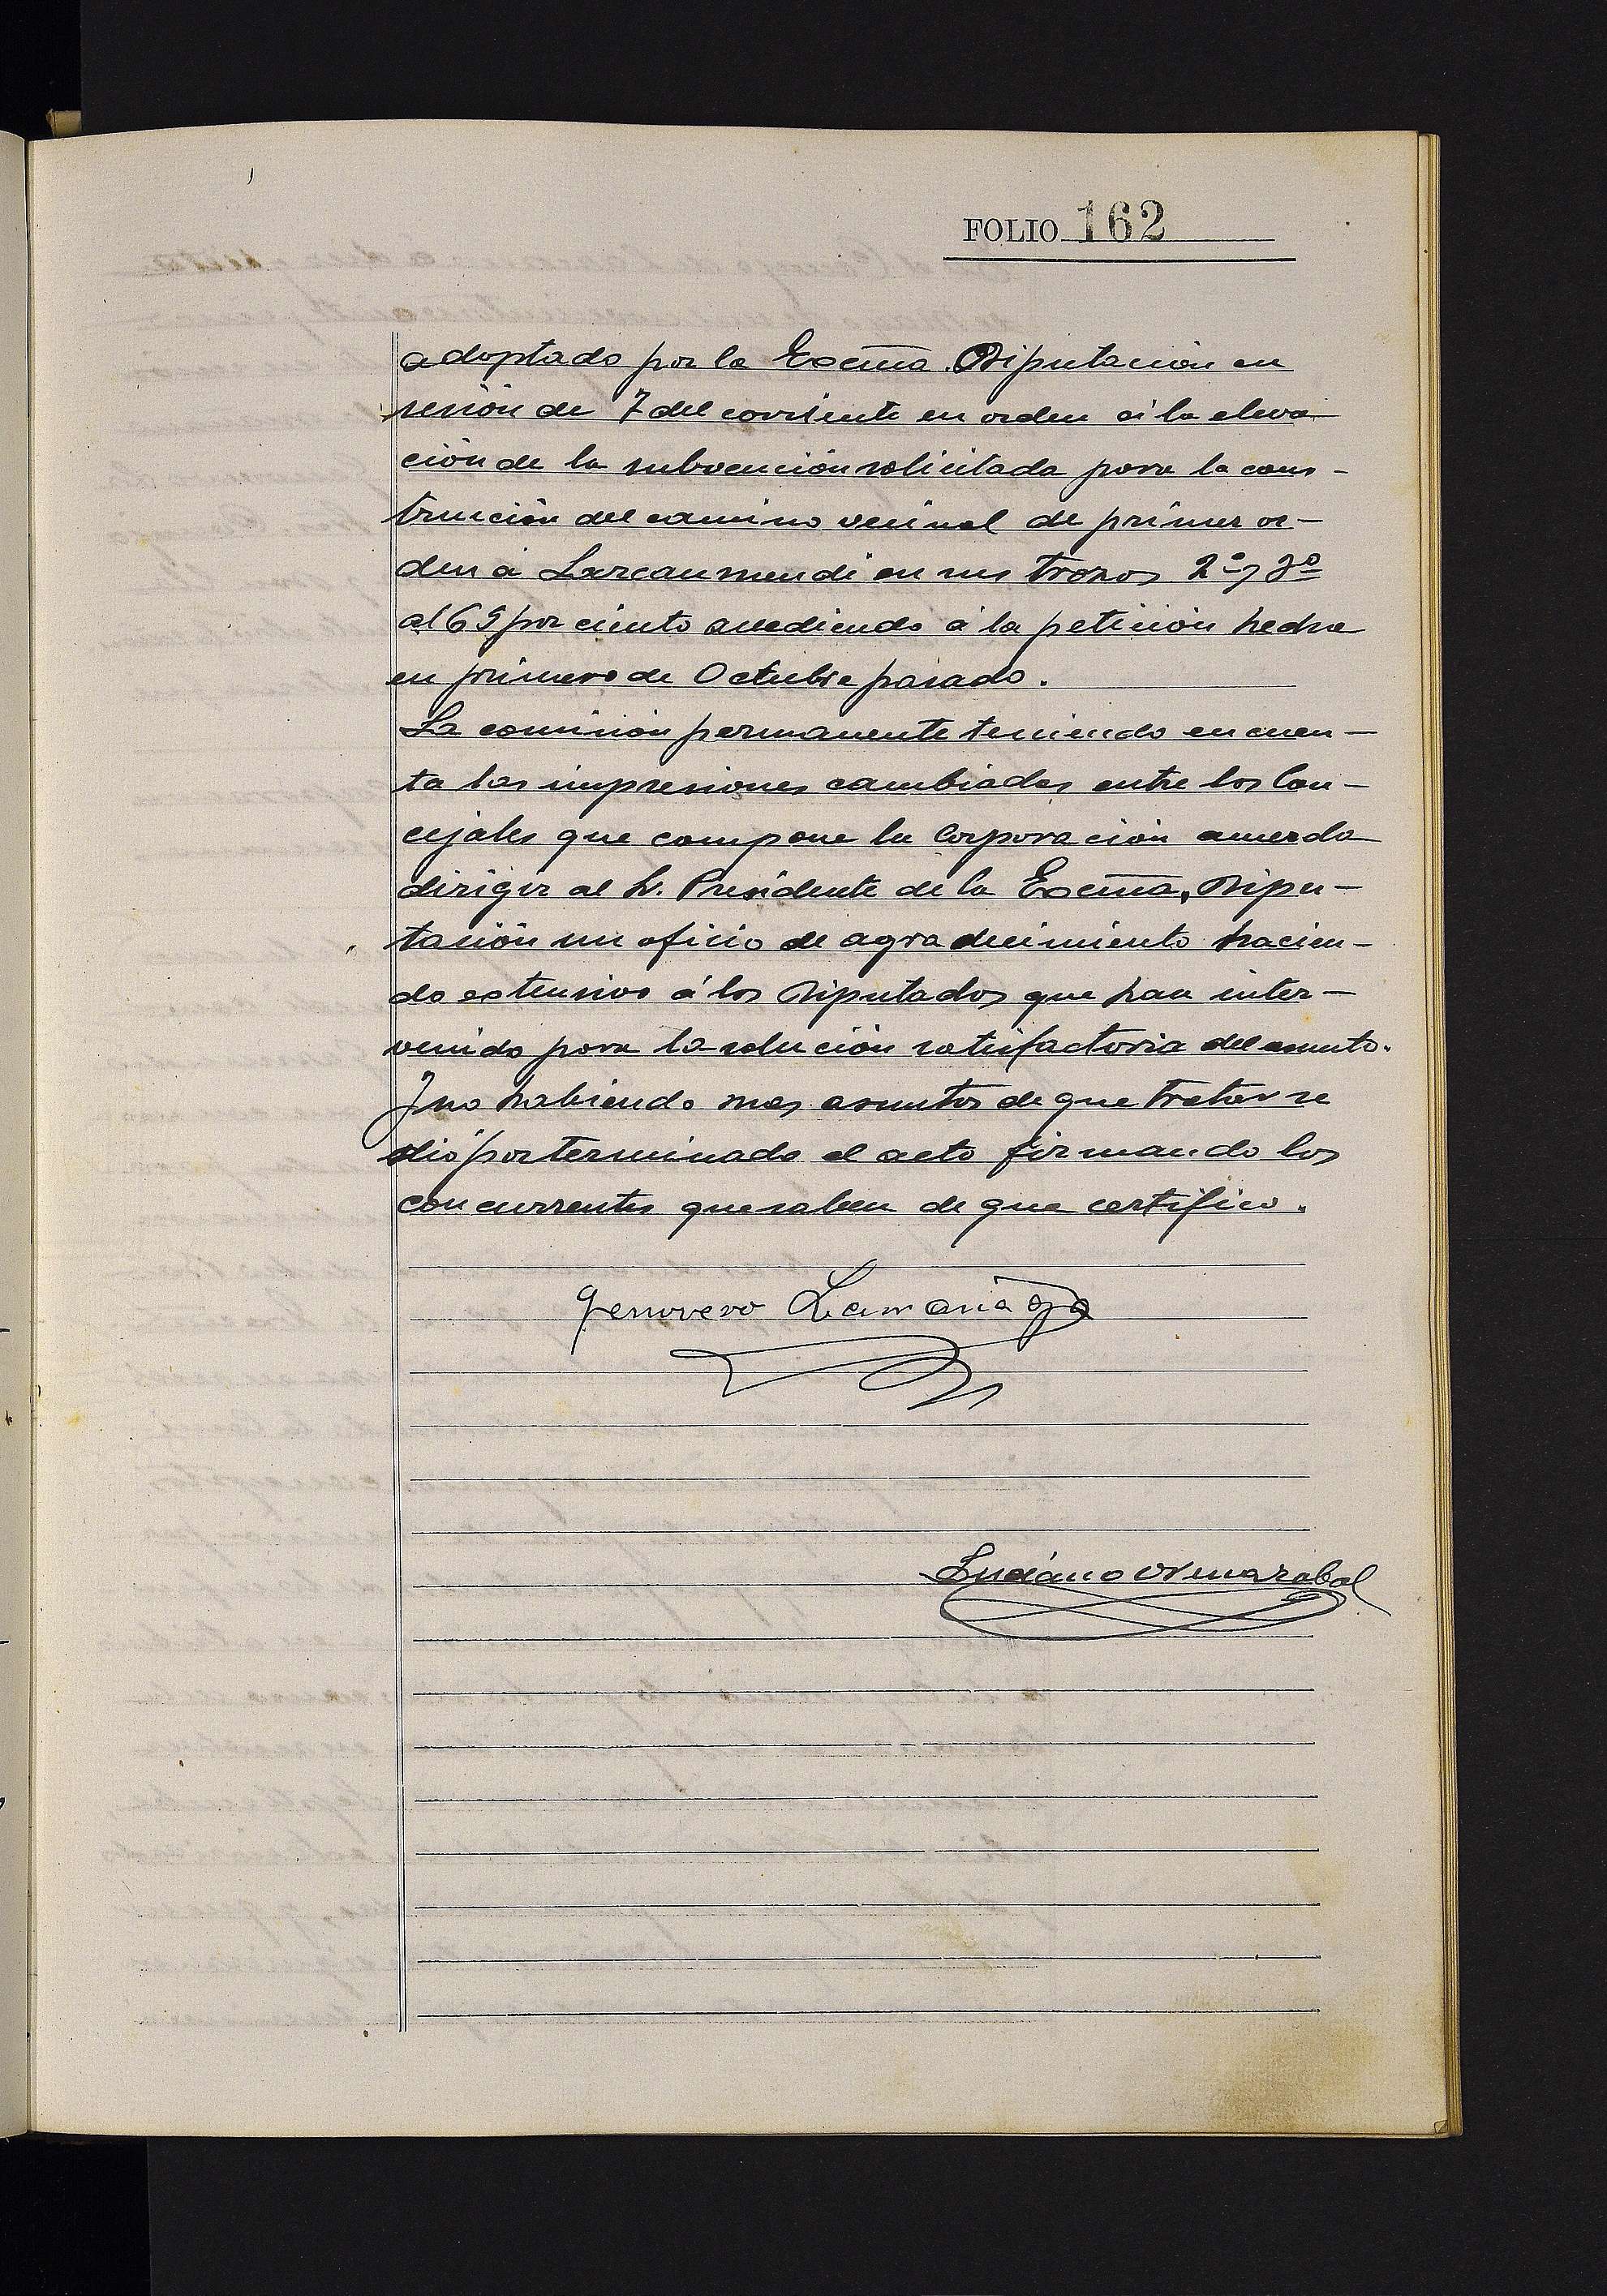 FOLIO 162
adoptado por la Excma. Diputación en
sesión de 7 del corriente en orden á la eleva
ción de la subvención solicitada para la cons-
trucción del camino vecinal de primer or-
den á Larcaumendi en sus trozos 2º y 3º
al 65 por ciento accediendo á la petición hecha
en primero de Octubre pasado.
La comisión permanente teniendo en cuen-
ta las impresiones cambiadas entre los Con-
cejales que compone la Corporación acuerda
dirigir al Sr. Presidente de la Excma. Dipu-
tación un oficio de agradecimiento hacien-
do extensivo á los Diputados que han inter-
venido para la solución satisfactoria del asunto.
Y no habiendo mas asuntos de que tratar se
dió por terminado el acto firmando los
concurrentes que saben de que certifico.
Genovevo Larrañaga
Luciano